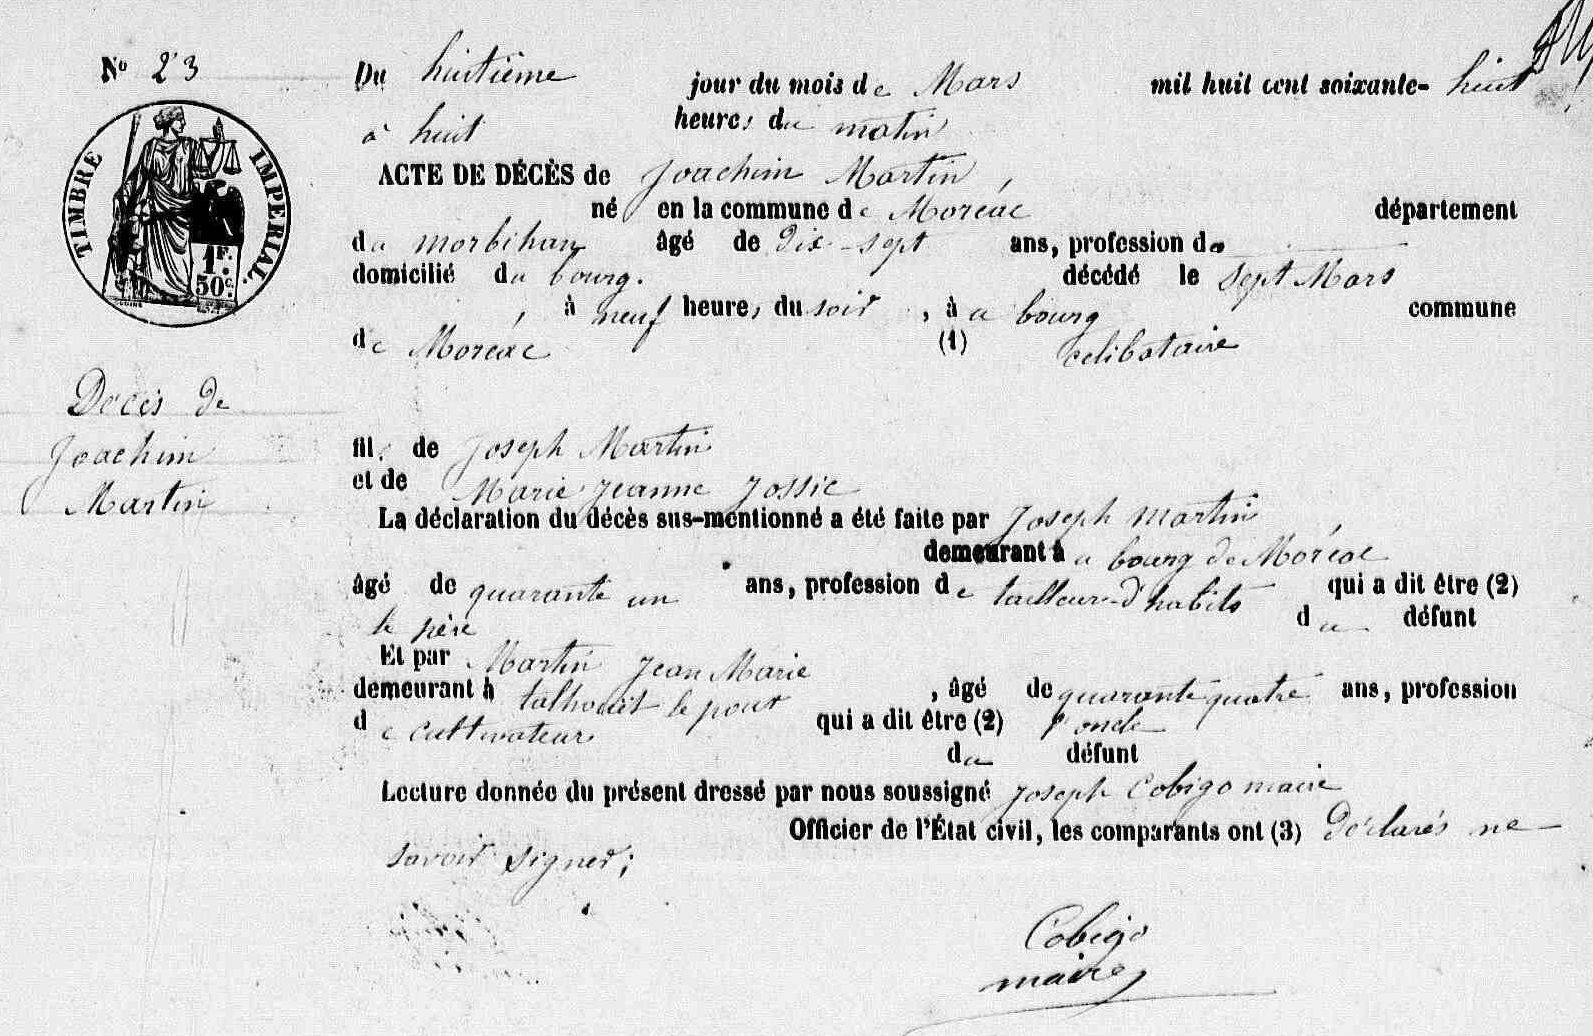 N° 23
Du huitième jour du mois de Mars mil huit cent soixante-huit
à huit heures du matin
ACTE DE DÉCÈS de Joachim Martin,
né en la commune de Moréac département
du morbihan âgé de dix-sept ans, profession de
domicilié du bourg. décédé le sept Mars
, à neuf heures du soir, à u bourg commune
de Moréac (1) celibataire
TIMBRE IMPERIAL.
1F. 50c.
Décès de
Joachim
Martin
fils de Joseph Martin
et de Marie Jeanne Jossic
La déclaration du décès sus-mentionné a été faite par Joseph Martin,
demeurant à u bourg de Moréac
âgé de quarante un ans, profession de tailleur-d'habits qui a dit être (2)
le père du défunt
Et par Martin Jean Marie
demeurant à talhouët le pour, âgé de quarante quatre ans, profession
de cultivateur qui a dit être (2) l'oncle
du défunt
Lecture donnée du présent dressé par nous soussigné Joseph Cobigo maire
Officier de l'État civil, les comparants ont (3) déclarés ne
savoir signer;
Cobigo
maire